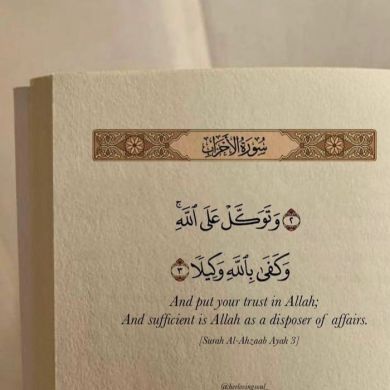 سُورَةُ الأَحْزَابِ
٢ وَتَوَكَّلْ عَلَى ٱللَّهِ ۚ
وَكَفَىٰ بِٱللَّهِ وَكِيلًا ٣
And put your trust in Allah;
And sufficient is Allah as a disposer of affairs.
[Surah Al-Ahzaab Ayah 3]